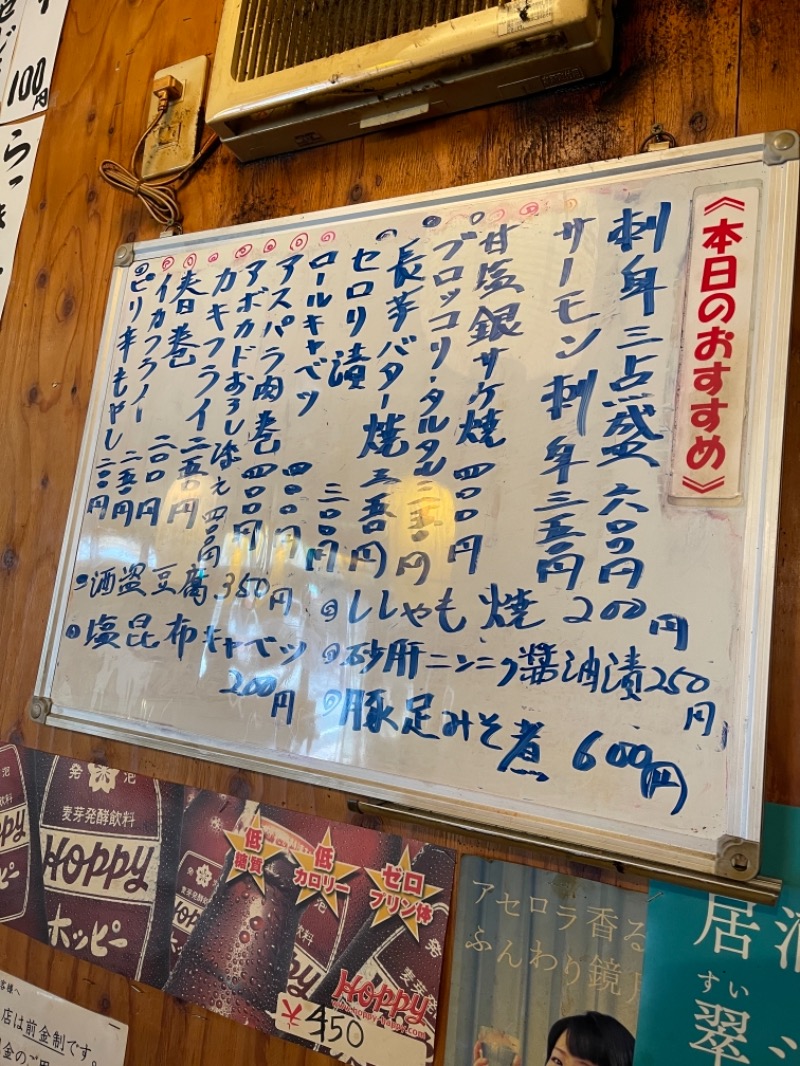 100円
らっき
《本日のおすすめ》
刺身三点盛 六〇〇円
サーモン刺身 三五〇円
甘塩銀サケ焼 四〇〇円
ブロッコリータルタル 二五〇円
長芋バター焼 三五〇円
セロリ漬
ロールキャベツ 三〇〇円
アスパラ肉巻 四〇〇円
アボカドおろし添え 四〇〇円
カキフライ 二五〇円
春巻
イカフライ 二〇〇円
ピリ辛もやし 二〇円
酒盗豆腐 350円
ししゃも焼 200円
塩昆布キャベツ 200円
砂肝ニンニク醤油漬 250円
豚足みそ煮 600円
発泡
麦芽発酵飲料
HOPPY
ホッピー
低糖質
低カロリー
ゼロプリン体
Hoppy
www.hoppy-happy.com
¥450
アセロラ香る
ふんわり鏡月
居酒
すい
翠
お客様へ
店は前金制です。